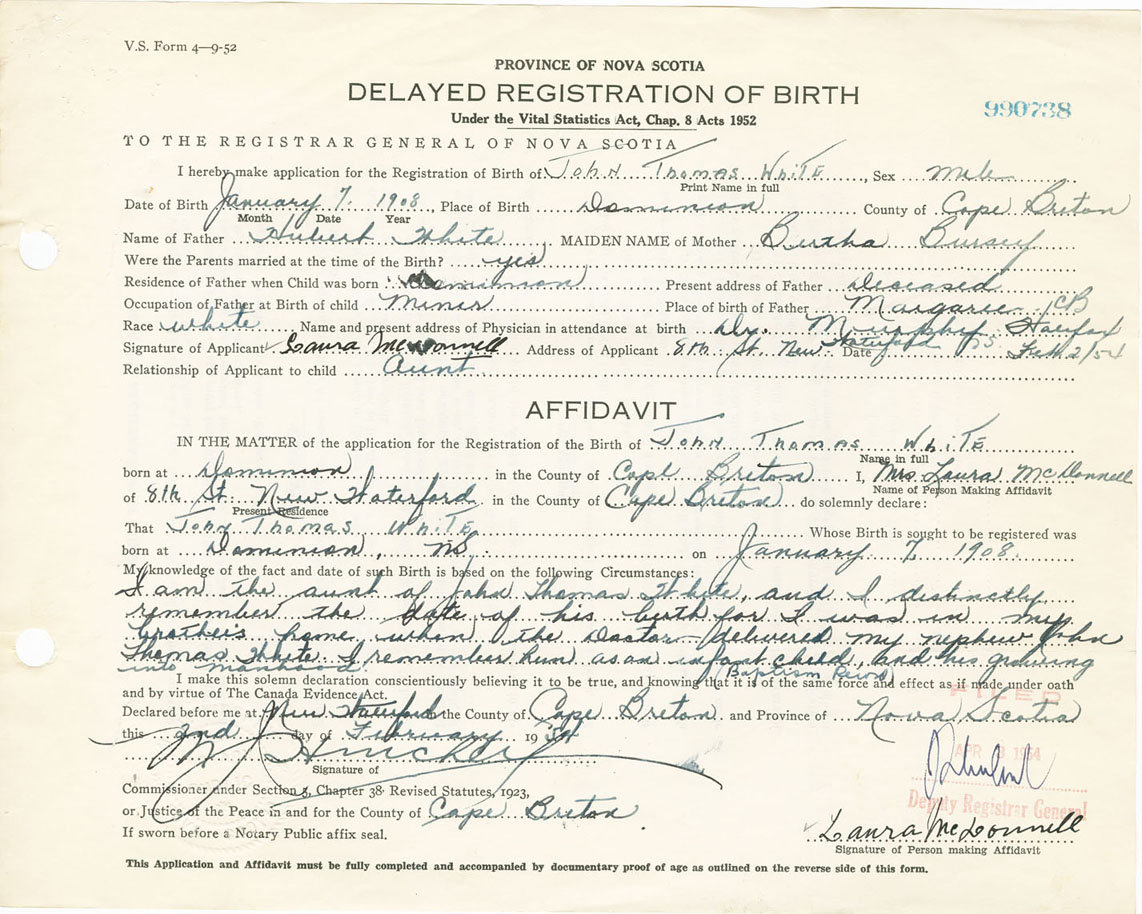 V.S. Form 4—9-52
PROVINCE OF NOVA SCOTIA
DELAYED REGISTRATION OF BIRTH
990738
Under the Vital Statistics Act, Chap. 8 Acts 1952
TO THE REGISTRAR GENERAL OF NOVA SCOTIA
I hereby make application for the Registration of Birth of John Thomas White, Sex Male
Print Name in full
Date of Birth January 7. 1908, Place of Birth Dominion County of Cape Breton
Month Date Year
Name of Father Hubert White, MAIDEN NAME of Mother Bertha Bursey
Were the Parents married at the time of the Birth? yes
Residence of Father when Child was born Dominion Present address of Father Deceased
Occupation of Father at Birth of child Miner Place of birth of Father Margaree, CB
Race white Name and present address of Physician in attendance at birth Dr. Halifax
Signature of Applicant Laura McDonnell Address of Applicant 8th St. New Waterford NS Date Feb. 2/54
Relationship of Applicant to child Aunt
AFFIDAVIT
IN THE MATTER of the application for the Registration of the Birth of John Thomas White
Name in full
born at Dominion in the County of Cape Breton I, Mrs Laura McDonnell
Name of Person Making Affidavit
of 8th St. New Waterford in the County of Cape Breton do solemnly declare:
Present Residence
That John Thomas White Whose Birth is sought to be registered was
born at Dominion, NS. on January 7, 1908.
My knowledge of the fact and date of such Birth is based on the following Circumstances:
I am the aunt of John Thomas White, and I distinctly
remember the date of his birth for I was in my
brothers home, when the Doctor delivered my nephew John
Thomas White. I remember him as an infant child, and his growing
into manhood
(Baptism
I make this solemn declaration conscientiously believing it to be true, and knowing that it is of the same force and effect as if made under oath
and by virtue of The Canada Evidence Act.
FILED
Declared before me at New Waterford the County of Cape Breton and Province of Nova Scotia
this 2nd day of February 1954
APR 1954
Signature of
Commissioner under Section 3, Chapter 38 Revised Statutes, 1923,
or Justice of the Peace in and for the County of Cape Breton
Deputy Registrar General
If sworn before a Notary Public affix seal.
Laura McDonnell
Signature of Person making Affidavit
This Application and Affidavit must be fully completed and accompanied by documentary proof of age as outlined on the reverse side of this form.